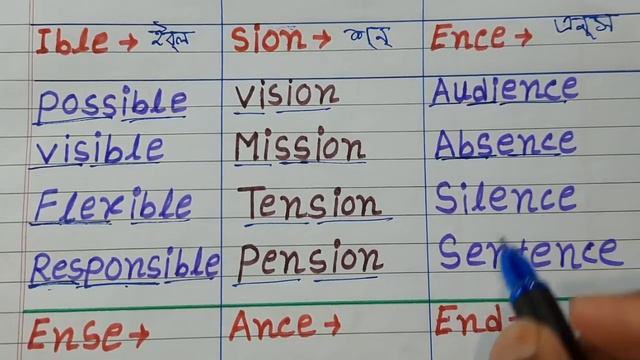 Ible → ইব্ল Sion → শন্ Ence → এন্স
Possible Vision Audience
Visible Mission Absence
Flexible Tension Silence
Responsible Pension Sentence
Ense → Ance → End